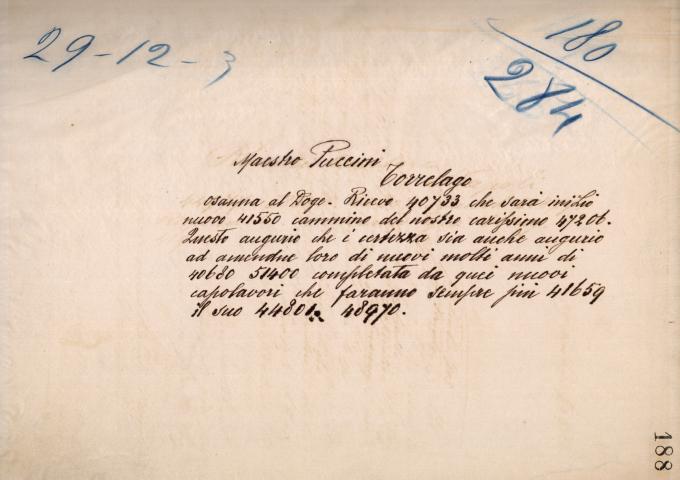 29-12-3
180
284
Maestro Puccini
Torrelago
osanna al Doge. Ricevo 40733 che sarà inizio
nuovo 41550 cammino del nostro carissimo 47206.
Questo augurio che è certezza sia anche augurio
ad amendue loro di nuovi molti anni di
40680 51400 completata da quei nuovi
capolavori che faranno sempre più 41659
il suo 44801. 48970.
188